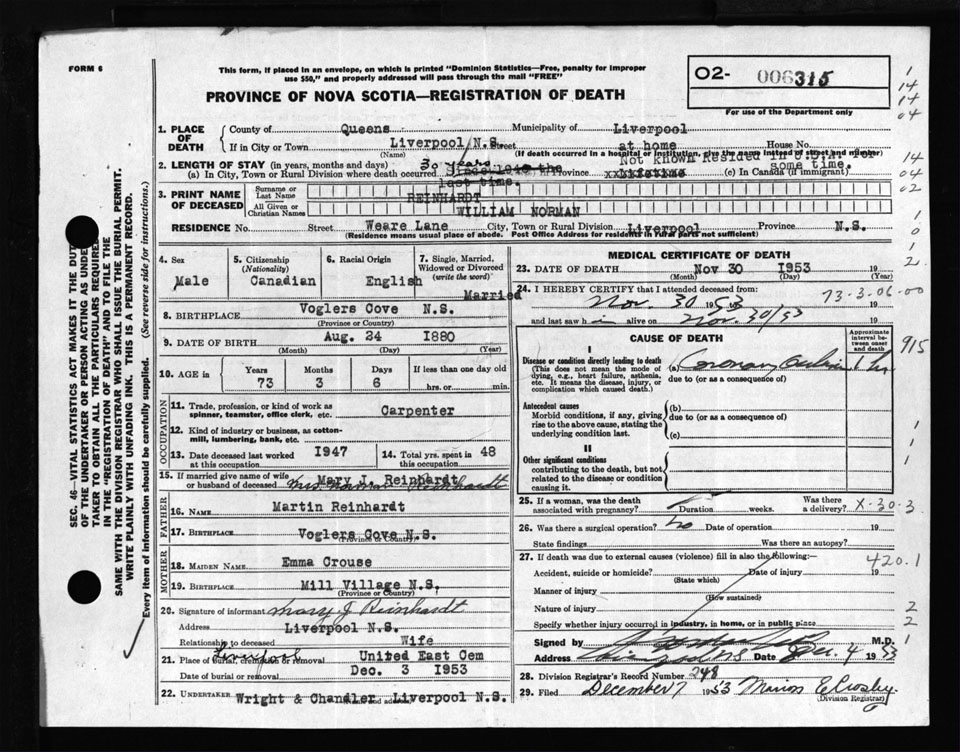 FORM 6
This form, if placed in an envelope, on which is printed "Dominion Statistics—Free, penalty for improper
use $50," and properly addressed will pass through the mail "FREE"
PROVINCE OF NOVA SCOTIA—REGISTRATION OF DEATH
02- 006315
For use of the Department only
1
14
14
04
1. PLACE OF DEATH
County of Queens Municipality of Liverpool
If in City or Town Liverpool N.S. Street at home House No.
(Name) (If death occurred in a hospital or institution, give the name instead of street and number)
2. LENGTH OF STAY (in years, months and days) 30 years Not Known Resided in U.S.A. for
(a) In City, Town or Rural Division where death occurred Since 1946 the last time. Province Lifetime (c) In Canada (if immigrant) some time.
14
04
02
3. PRINT NAME OF DECEASED
Surname or Last Name REINHARDT
All Given or Christian Names WILLIAM NORMAN
RESIDENCE No. Street Weare Lane City, Town or Rural Division Liverpool Province N.S.
(Residence means usual place of abode. Post Office Address for residents in rural parts not sufficient)
1
0
1
2
4. Sex
Male
5. Citizenship (Nationality)
Canadian
6. Racial Origin
English
7. Single, Married, Widowed or Divorced (write the word)
Married
8. BIRTHPLACE Voglers Cove N.S.
(Province or Country)
9. DATE OF BIRTH Aug. 24 1880
(Month) (Day) (Year)
10. AGE in
Years Months Days If less than one day old
73 3 6 hrs. or min.
OCCUPATION
11. Trade, profession or kind of work as
spinner, teamster, office clerk, etc. Carpenter
12. Kind of industry or business, as cotton-
mill, lumbering, bank, etc.
13. Date deceased last worked
at this occupation 1947
14. Total yrs. spent in
this occupation 48
15. If married give name of wife
or husband of deceased Mary J. Reinhardt
Mrs Norman Reinhardt
FATHER
16. NAME Martin Reinhardt
17. BIRTHPLACE Voglers Cove N.S.
(Province or Country)
MOTHER
18. MAIDEN NAME Emma Crouse
19. BIRTHPLACE Mill Village N.S.
(Province or Country)
20. Signature of informant Mary J Reinhardt
Address Liverpool N.S.
Relationship to deceased Wife
21. Place of burial, cremation or removal Liverpool United East Cem
Date of burial or removal Dec. 3 1953
22. UNDERTAKER Wright & Chandler, Liverpool N.S.
(Name and address)
MEDICAL CERTIFICATE OF DEATH
23. DATE OF DEATH Nov 30 1953 19
(Month) (Day)
24. I HEREBY CERTIFY that I attended deceased from:
Nov. 30 1953 19
73-3.06-00
and last saw him alive on Nov. 30/53 19
CAUSE OF DEATH
Approximate interval between onset and death
I
Disease or condition directly leading to death
(This does not mean the mode of
dying, e.g., heart failure, asthenia,
etc. It means the disease, injury, or
complication which caused death.)
(a) Coronary
due to (or as a consequence of)
915
Antecedent causes
Morbid conditions, if any, giving
rise to the above cause, stating the
underlying condition last.
(b)
due to (or as a consequence of)
(c)
1
II
Other significant conditions
contributing to the death, but not
related to the disease or condition
causing it.
1
25. If a woman, was the death
associated with pregnancy? Duration weeks. Was there
a delivery? X-30-3
26. Was there a surgical operation? No Date of operation 19
State findings Was there an autopsy?
27. If death was due to external causes (violence) fill in also the following:
420.1
Accident, suicide or homicide? Date of injury 19
(State which)
Manner of injury
(How sustained)
Nature of injury
2
Specify whether injury occurred in industry, in home, or in public place
2
Signed by M.D.
1
Address Liverpool N.S Date Dec. 4 1953
28. Division Registrar's Record Number 248
29. Filed December 7 1953 Marion E Crosby
(Division Registrar)
SEC. 46—VITAL STATISTICS ACT MAKES IT THE DUTY
OF THE UNDERTAKER OR PERSON ACTING AS UNDER-
TAKER TO OBTAIN ALL THE PARTICULARS REQUIRED
IN THE "REGISTRATION OF DEATH" AND TO FILE THE
SAME WITH THE DIVISION REGISTRAR WHO SHALL ISSUE THE BURIAL PERMIT.
WRITE PLAINLY WITH UNFADING INK. THIS IS A PERMANENT RECORD.
Every item of information should be carefully supplied. (See reverse side for instructions.)